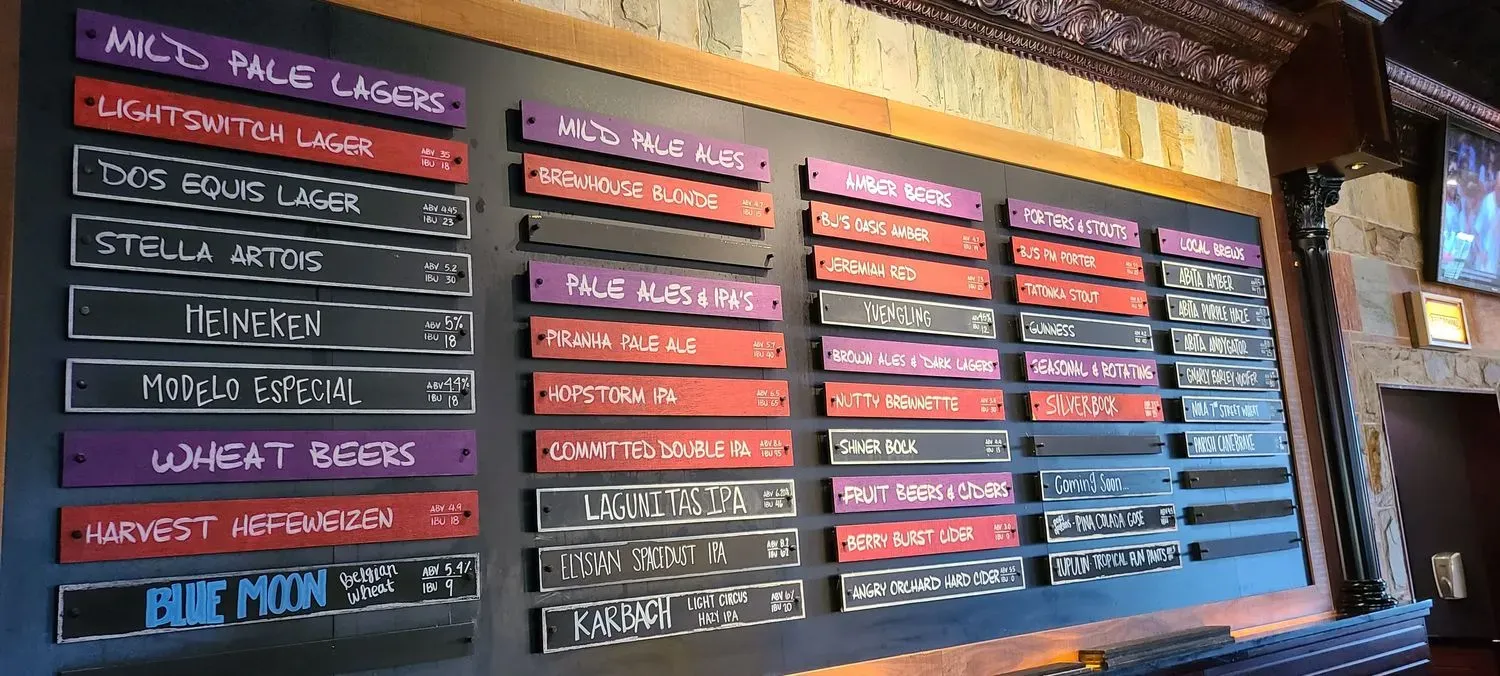 MILD PALE LAGERS
LIGHTSWITCH LAGER ABV 3.5
IBU 18
DOS EQUIS LAGER ABV 4.45
IBU 23
STELLA ARTOIS ABV 5.2
IBU 30
HEINEKEN ABV 5%
IBU 18
MODELO ESPECIAL ABV 4.4%
IBU 18
WHEAT BEERS
HARVEST HEFEWEIZEN ABV 4.9
IBU 18
BLUE MOON Belgian wheat ABV 5.4%
IBU 9
MILD PALE ALES
BREWHOUSE BLONDE ABV 4.7
IBU
PALE ALES & IPA'S
PIRANHA PALE ALE ABV 5.7
IBU 40
HOPSTORM IPA ABV 6.5
IBU 65
COMMITTED DOUBLE IPA ABV 8.6
IBU 95
LAGUNITAS IPA ABV
IBU 46
ELYSIAN SPACEDUST IPA ABV 8.2
IBU 62
KARBACH LIGHT CIRCUS
HAZY IPA ABV 6%
IBU 20
AMBER BEERS
BJ'S OASIS AMBER
JEREMIAH RED
YUENGLING
IBU 12
BROWN ALES & DARK LAGERS
NUTTY BREWNETTE
SHINER BOCK
FRUIT BEERS & CIDERS
BERRY BURST CIDER
ANGRY ORCHARD HARD CIDER
PORTERS & STOUTS
BJ'S PM PORTER
TATONKA STOUT
GUINNESS
SEASONAL & ROTATING
SILVERBOCK
Coming Soon...
PINA COLADA GOSE
LUPULIN-TROPICAL FUN PANTS
LOCAL BREWS
ABITA AMBER
ABITA PURPLE HAZE
ABITA ANDYGATOR
GNARLY BARLEY JUCIFER
NOLA 7TH STREET WHEAT
PARISH CANEBRAKE